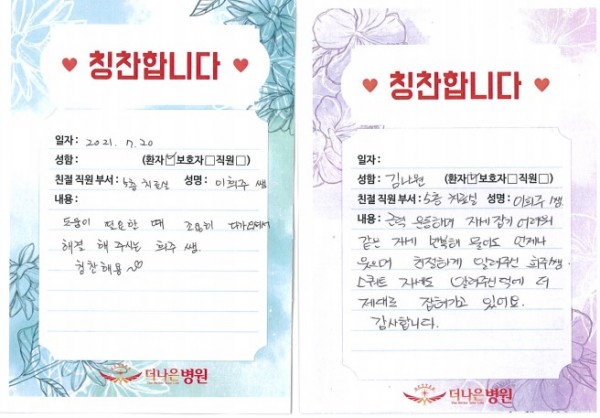 ♥ 칭찬합니다 ♥
일자: 2021. 7. 20
성함: (환자☑보호자□직원□)
친절 직원 부서: 5층 치료실 성명: 이희주 쌤
내용:
도움이 필요한 때 조용히 다가오셔서
해결 해 주시는 희주 쌤
칭찬해용~♡
더나은병원
♥ 칭찬합니다 ♥
일자:
성함: 김나원 (환자☑보호자□직원□)
친절 직원 부서: 5층 치료실 성명: 이희주 쌤
내용: 근력 운동하며 자세잡기 어려워
같은 자세 반복해 물어도 언제나
웃으며 친절하게 알려주신 희주쌤.
스쿼트 자세도 알려주신 덕에 더
제대로 잡혀가고 있어요.
감사합니다.
더나은병원